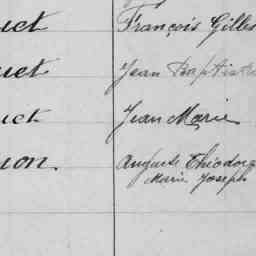 uct François Gilles
uct Jean Baptiste
uct Jean Marie
ion. Auguste Théodore
Marie Joseph